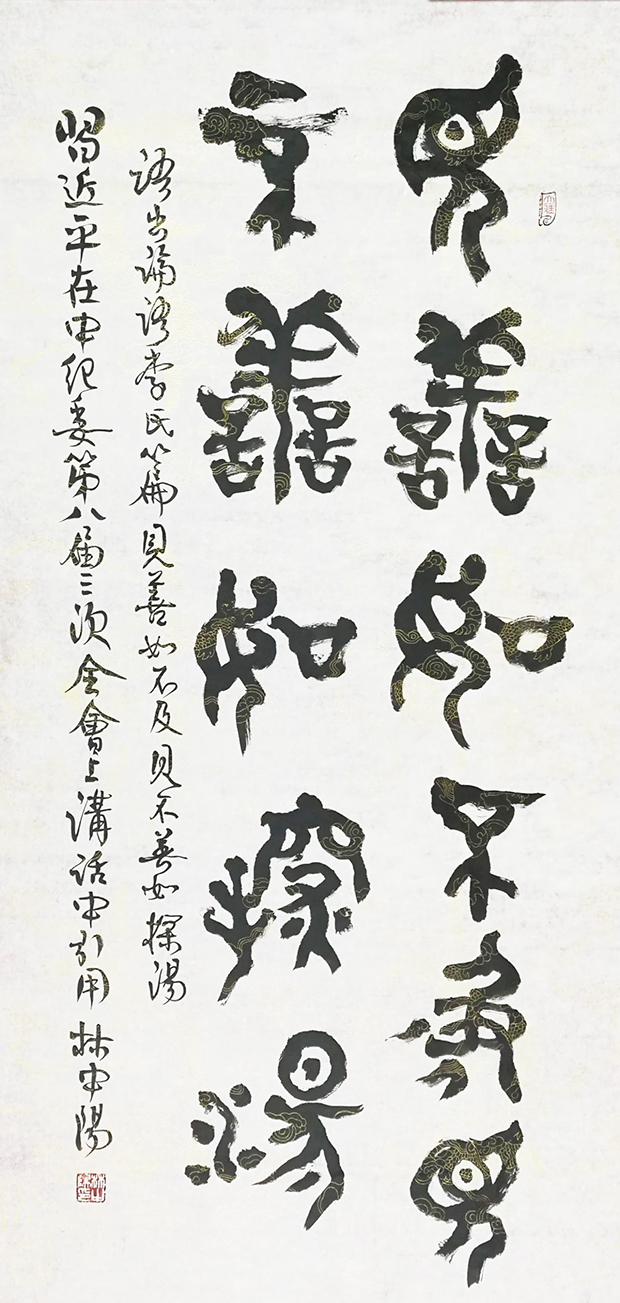 見善如不及見
不善如探湯
語出論語季氏篇見善如不及見不善如探湯
習近平在中紀委第八屆三次全會上講話中引用 林中陽